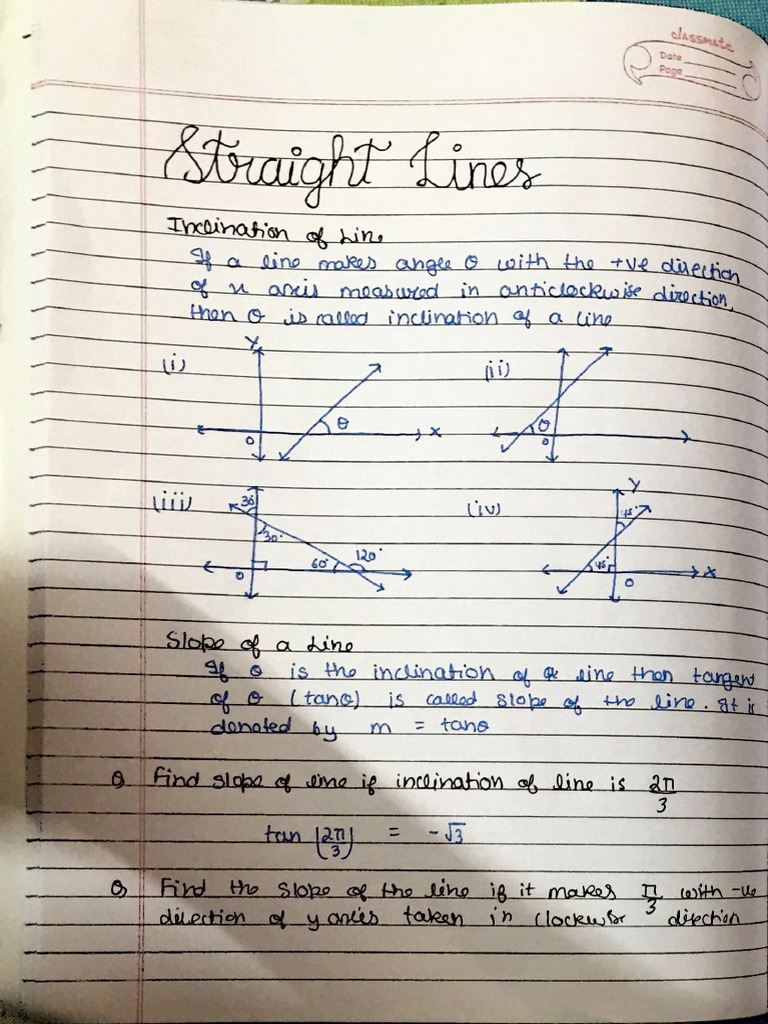 classmate
Date
Page
Straight Lines
Inclination of Line
If a line makes angle θ with the +ve direction
of x axis measured in anticlockwise direction,
then θ is called inclination of a line
(i) Y (ii)
θ θ
O X O
(iii) 30° (iv) Y
45°
30°
60° 120° 45°
O O X
Slope of a Line
If θ is the inclination of a line then tangent
of θ (tanθ) is called slope of the line. It is
denoted by m = tanθ
Q Find slope of line if inclination of line is 2π/3
tan (2π/3) = -√3
Q Find the slope of the line if it makes π/3 with -ve
direction of y axies taken in clockwise direction